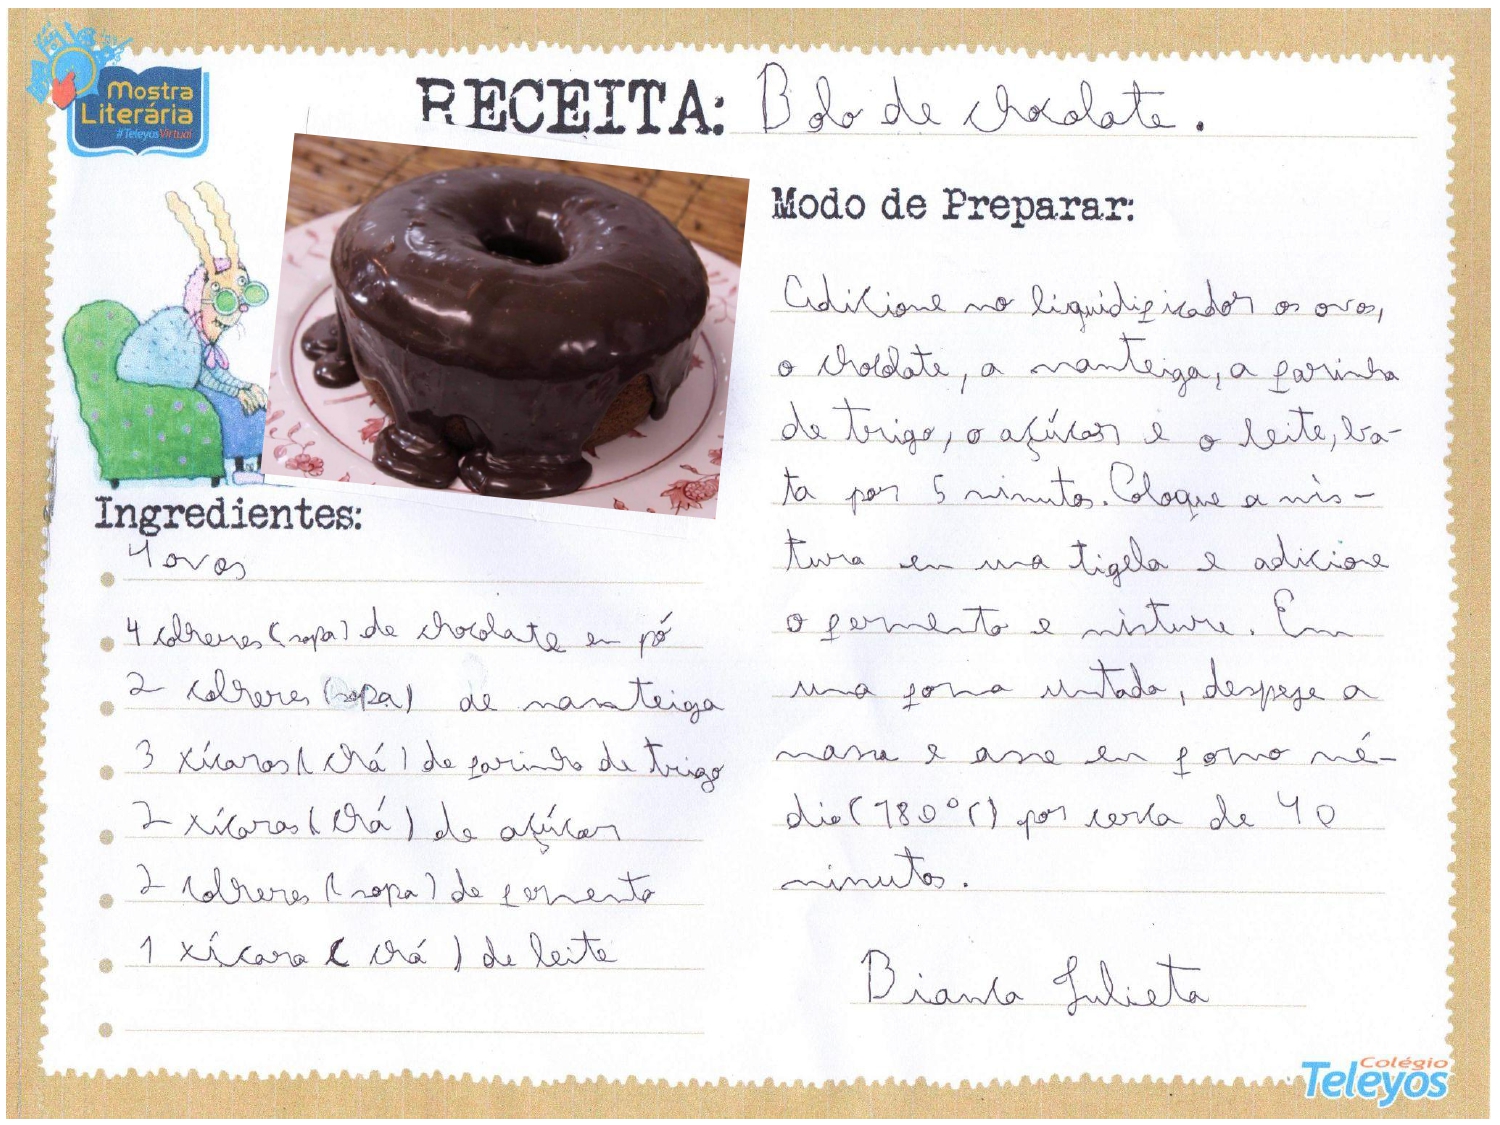 Mostra
Literária
#TeleyosVirtual
RECEITA: Bolo de chocolate.
Ingredientes:
4 ovos
4 colheres (sopa) de chocolate em pó
2 colheres (sopa) de manteiga
3 xícaras (chá) de farinha de trigo
2 xícaras (chá) de açúcar
2 colheres (sopa) de fermento
1 xícara (chá) de leite
Modo de Preparar:
Adicione no liquidificador os ovos,
o chocolate, a manteiga, a farinha
de trigo, o açúcar e o leite, ba-
ta por 5 minutos. Coloque a mis-
tura em uma tigela e adicione
o fermento e misture. Em
uma forma untada, despeje a
massa e asse em forno mé-
dio (180°C) por cerca de 40
minutos.
Bianca Julieta
Colégio
Teleyos